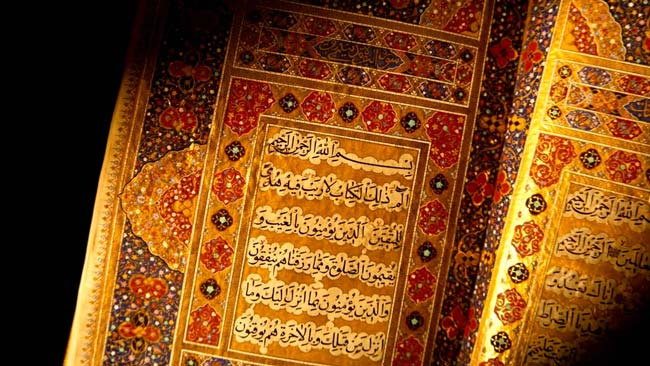 بسم الله الرحمن الرحيم
الم ذلك الكتاب لا ريب فيه هدى
للمتقين الذين يؤمنون بالغيب و
يقيمون الصلوة ومما رزقناهم ينفقون
والذين يؤمنون بما انزل اليك وما
انزل من قبلك وبالآخرة هم يوقنون
بسم الله الرحمن الرحيم
اياك نعبد و
اهدنا الصراط